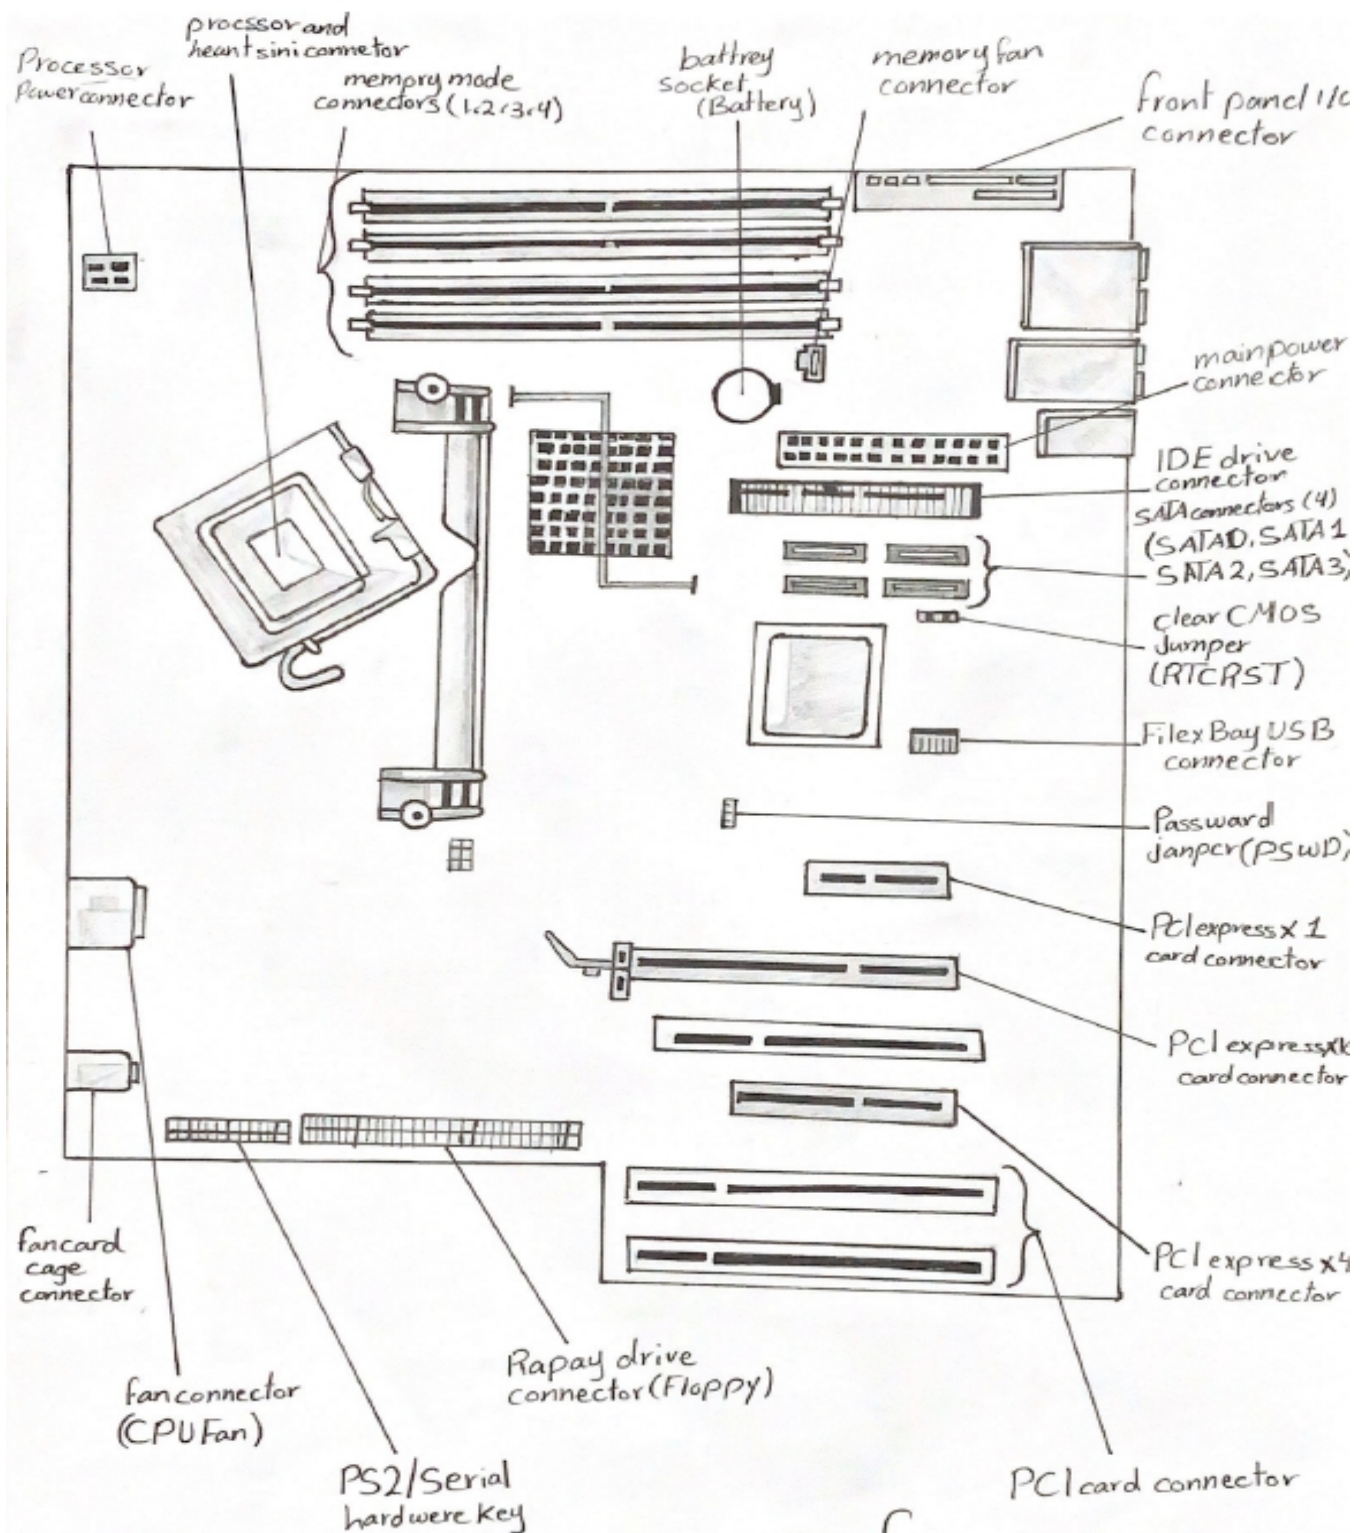 procssor and
heantsini connetor
Processor
power connector
mempry mode
connectors (1.2.3.4)
battrey
socket
(Battery)
memory fan
connector
front panel I/O
connector
main power
connector
IDE drive
connector
SATA connectors (4)
(SATA0, SATA1
SATA2, SATA3)
clear CMOS
Jumper
(RTCRST)
Filex Bay USB
connector
Passward
janper (PSWD)
PCI express x 1
card connector
PCI express
card connector
PCI express x4
card connector
PCI card connector
fan card
cage
connector
fan connector
(CPU Fan)
PS2/Serial
hardwere key
Rapay drive
connector (Floppy)